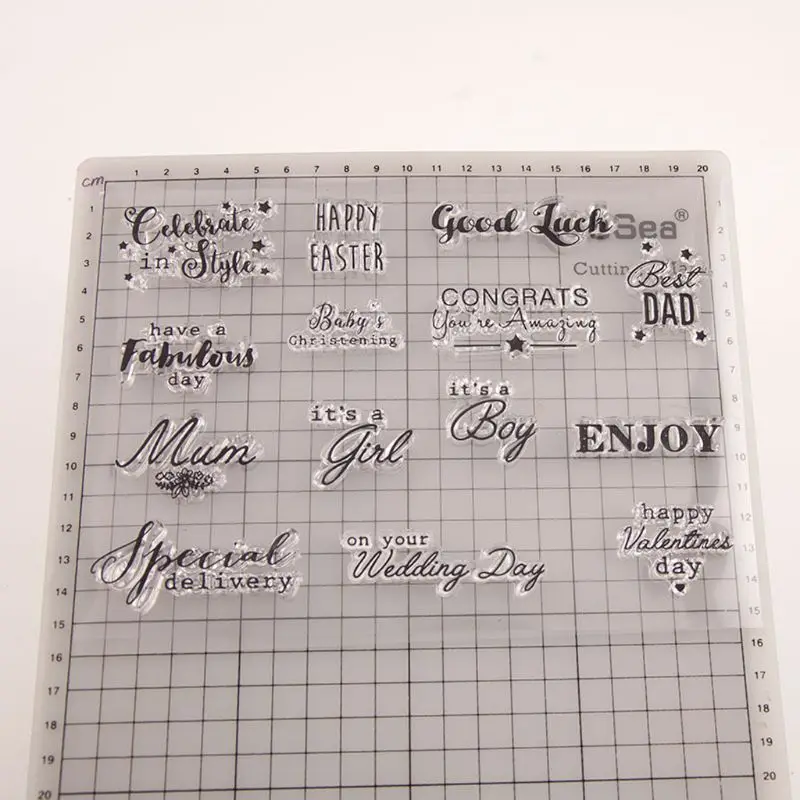 cm 1 2 3 4 5 6 7 8 9 10 11 12 13 14 15 16 17 18 19 20
Celebrate
in Style
HAPPY
EASTER
Good Luck
Sea®
Best
DAD
have a
Fabulous
day
Baby's
Christening
CONGRATS
You're Amazing
Mum
it's a
Girl
it's a
Boy
ENJOY
Special
delivery
on your
Wedding Day
happy
Valentines
day
1
2
3
4
5
6
7
8
9
10
11
12
13
14
15
16
17
18
19
20
1
2
3
4
5
6
7
8
9
10
11
12
13
14
15
16
17
18
19
20